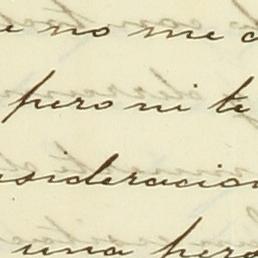 e no me c
pero ni te
nsideracion
una pers